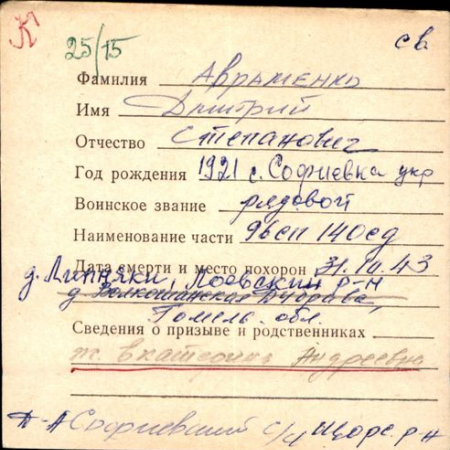 К
25/15
св
Фамилия Авраменко
Имя Дмитрий
Отчество Степанович
Год рождения 1921 г. Софиевка укр
Воинское звание рядовой
Наименование части 96сп 140сд
Дата смерти и место похорон 31.10.43
д. Липняки, Лоевский р-н
д. Волкошанская Дуброва,
Гомель. обл.
Сведения о призыве и родственниках
ж. Екатерина Андреевна
Софиевский с/с Щорс. р-н